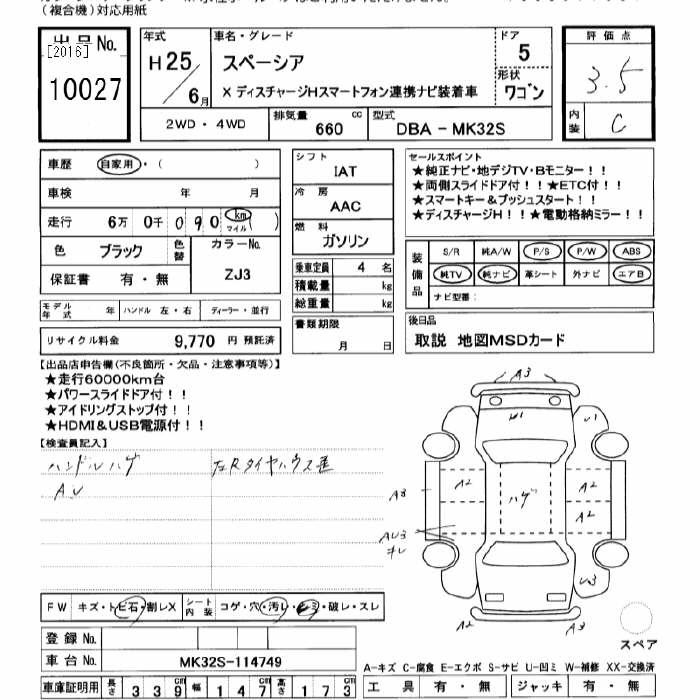 (複合機)対応用紙
出品No.
[2016]
10027
年式
H25/6月
車名・グレード
スペーシア
X ディスチャージHスマートフォン連携ナビ装着車
ドア
5
形状
ワゴン
評価点
3.5
内装
C
2WD・4WD
排気量
660 cc
型式
DBA-MK32S
車歴 自家用・( )
車検 年 月
走行 6万 0千 090 km マイル ( )
色 ブラック 色替
カラーNo.
ZJ3
保証書 有・無
シフト
IAT
冷房
AAC
燃料
ガソリン
乗車定員 4 名
積載量 kg
総重量 kg
セールスポイント
★純正ナビ・地デジTV・Bモニター!!
★両側スライドドア付!!★ETC付!!
★スマートキー&プッシュスタート!!
★ディスチャージH!!★電動格納ミラー!!
装備品
S/R 純A/W P/S P/W ABS
純TV 純ナビ 革シート 外ナビ エアB
ナビ型番:
モデル年式 年 ハンドル 左・右 ディーラー・並行
リサイクル料金 9,770 円 預託済
書類期限
月 日
後日品
取説 地図MSDカード
【出品店申告欄(不良箇所・欠品・注意事項等)】
★走行60000km台
★パワースライドドア付!!
★アイドリングストップ付!!
★HDMI&USB電源付!!
【検査員記入】
ハンドルハゲ
AU
A3
W1
U1
A2
A2
A2
ハゲ
A3
AU3
キレ
U3
A2
A3
スペア
FW キズ・トビ石・割レX
シート内装 コゲ・穴・汚レ・シミ・破レ・スレ
登録No.
車台No. MK32S-114749
車庫証明用 長さ 339cm 幅 147cm 高さ 173cm
A-キズ C-腐食 E-エクボ S-サビ U-凹ミ W-補修 XX-交換済
工具 有・無 ジャッキ 有・無